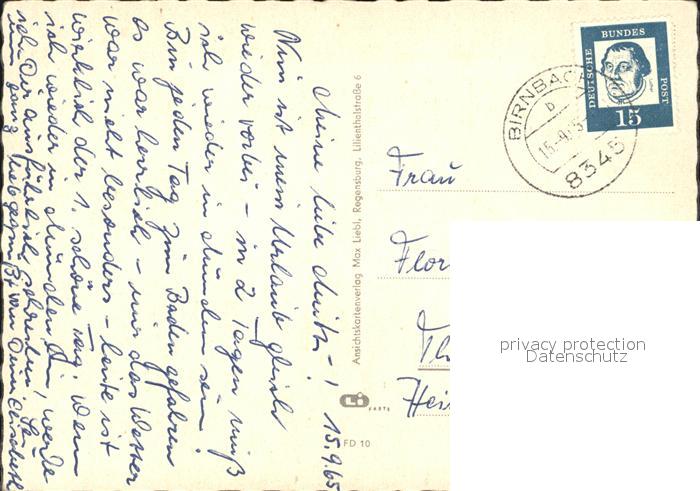 15.9.65
Meine liebe
Nun ist mein Urlaub gleich
wieder vorbei - in 2 Tagen muß
ich wieder in München sein.
Bin jeden Tag zum Baden gefahren
es war herrlich - nur das Wetter
war nicht besonders - heute ist
wirklich der 1. schöne Tag. Wenn
ich wieder in München bin, werde
ich Dir ausführlich schreiben.
Ansichtskartenverlag Max Liebl, Regensburg, Lilienthalstraße 6
Li
KARTE
FD 10
DEUTSCHE BUNDES POST
15
BIRNBACH
b
8345
Frau
Flor
privacy protection
Datenschutz